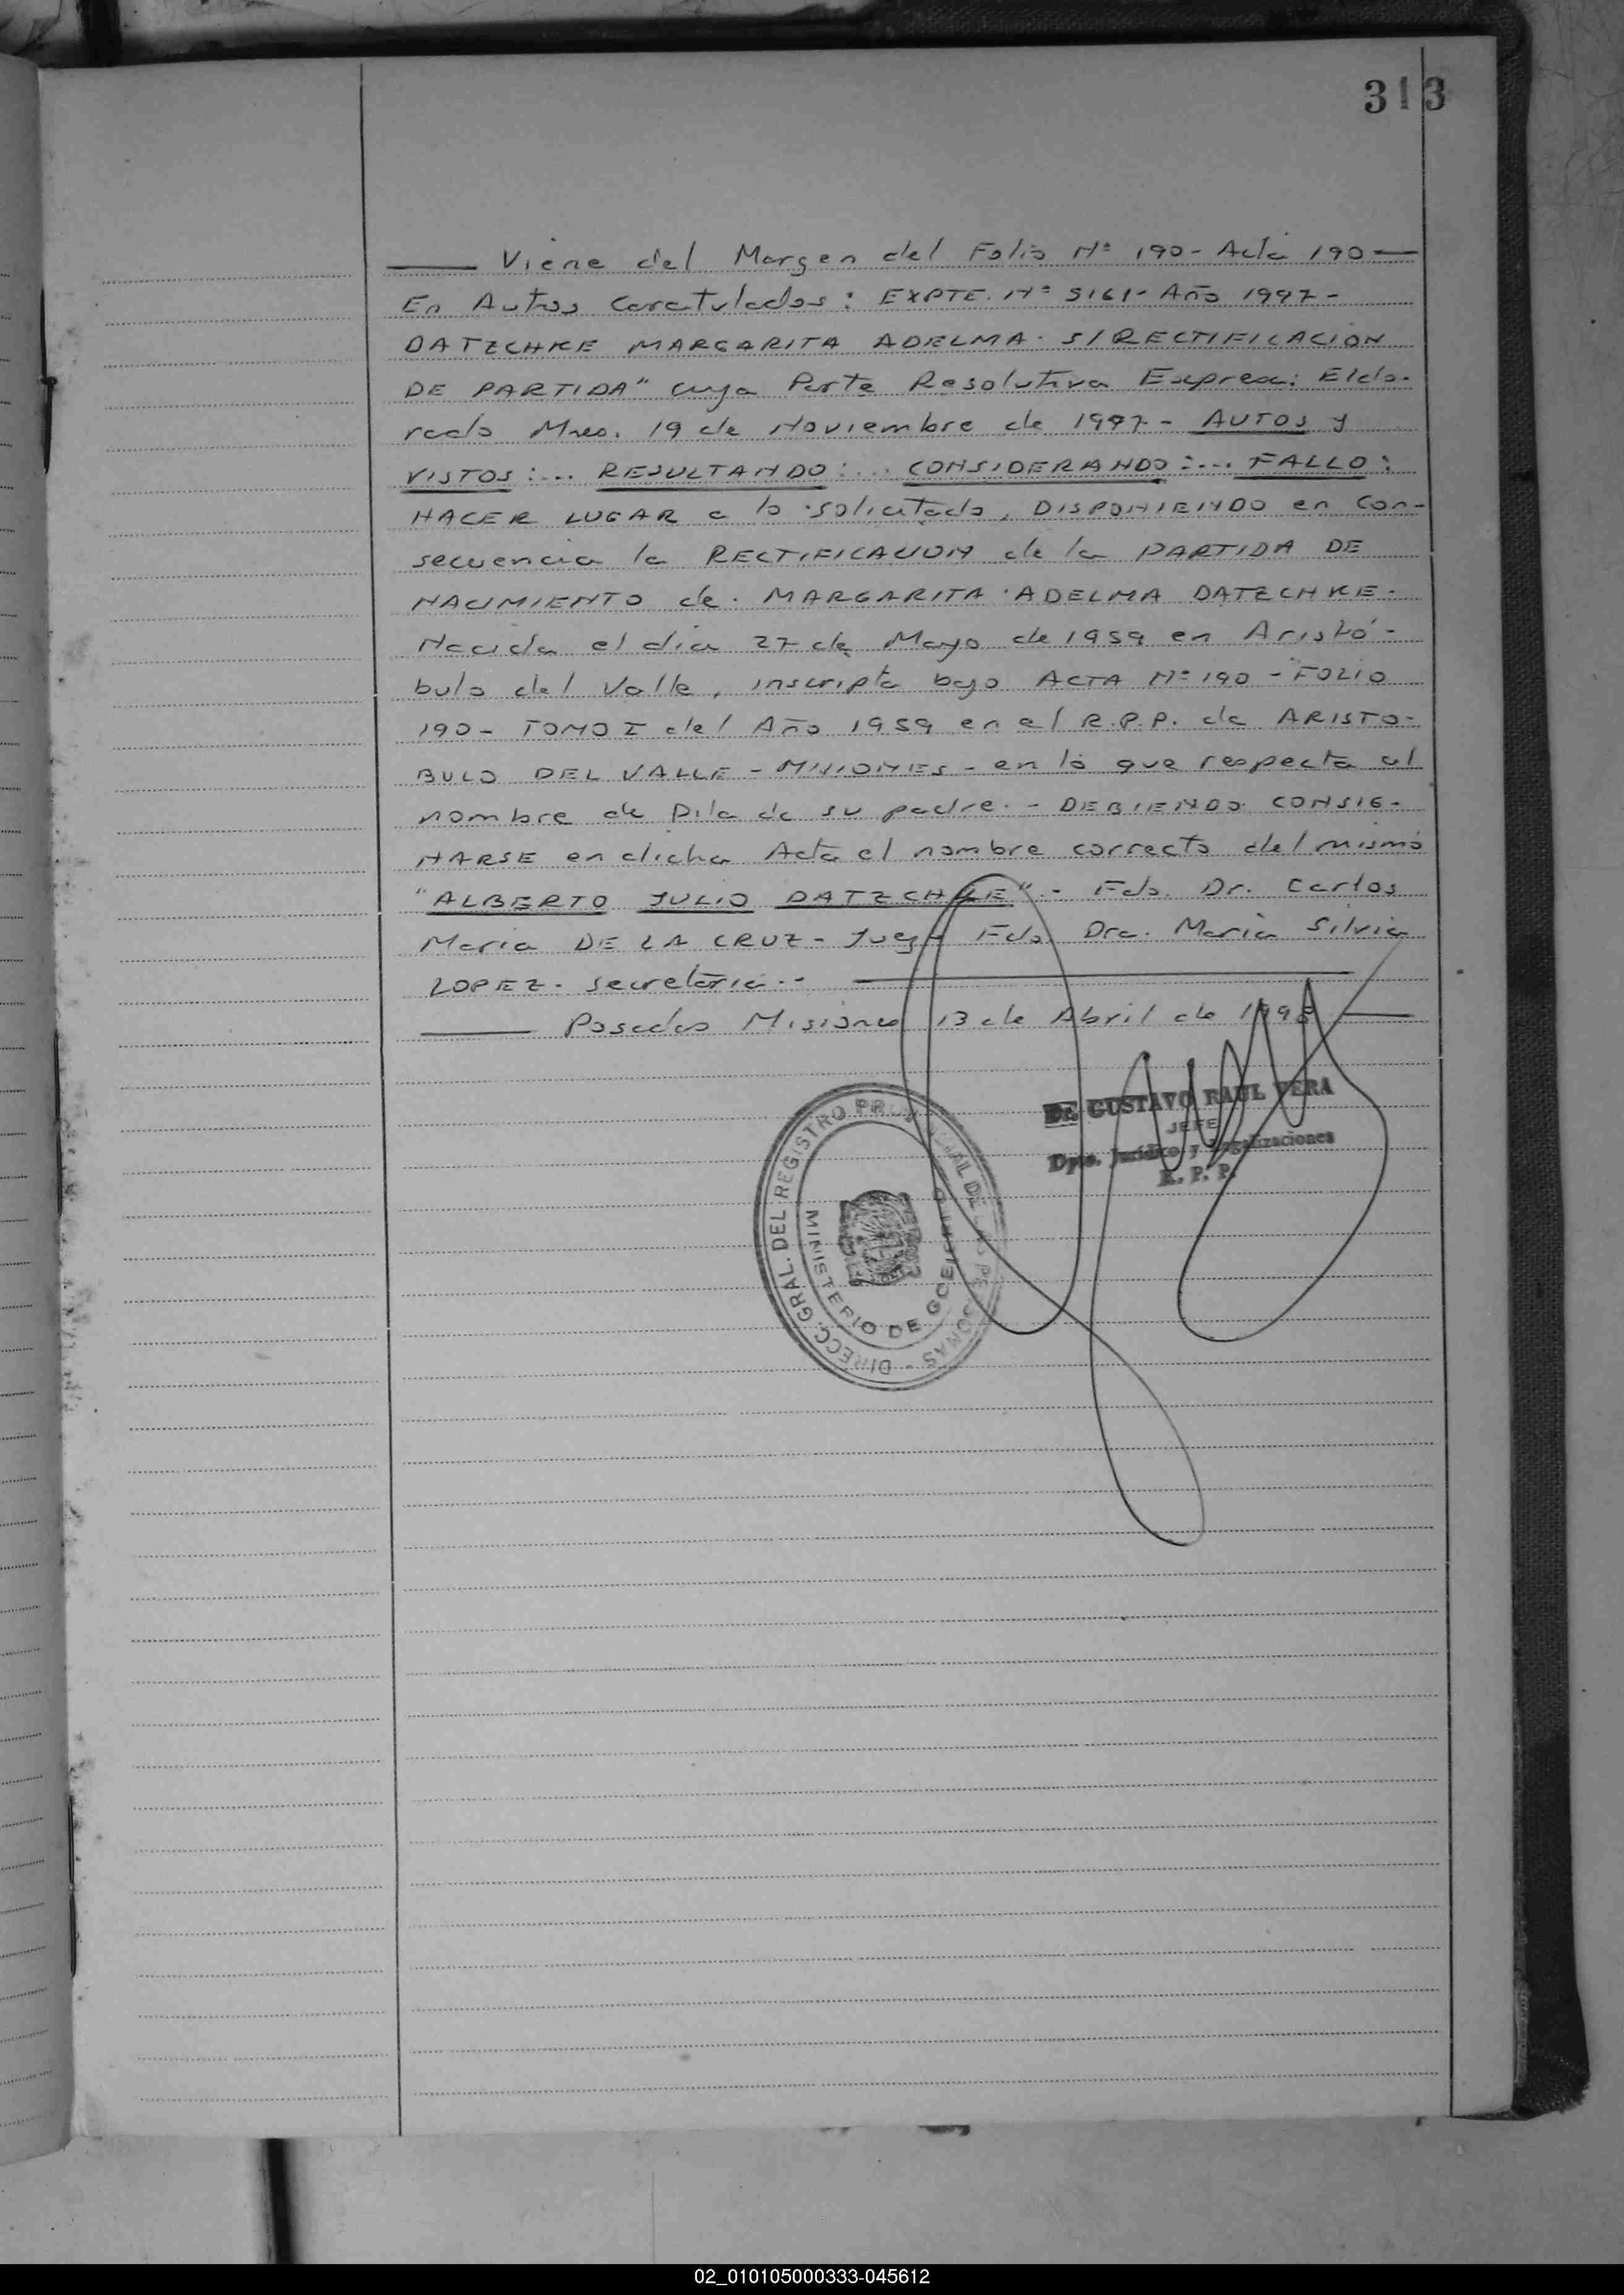 313
Viene del Margen del Folio Nº 190 - Acta 190
En Autos Caratulados: EXPTE. Nº 5161 - Año 1997 -
DATZCHKE MARGARITA ADELMA. S/RECTIFICACION
DE PARTIDA" cuya Parte Resolutiva Expresa: Eldo-
rado Mnes. 19 de Noviembre de 1997 - AUTOS y
VISTOS:... RESULTANDO:... CONSIDERANDO:... FALLO:
HACER LUGAR a lo solicitado, DISPONIENDO en con-
secuencia la RECTIFICACION de la PARTIDA DE
NACIMIENTO de. MARGARITA ADELMA DATZCHKE.
Nacida el día 27 de Mayo de 1959 en Aristó-
bulo del Valle, inscripta bajo ACTA Nº 190 - FOLIO
190 - TOMO I del Año 1959 en el R.P.P. de ARISTO-
BULO DEL VALLE - MISIONES - en lo que respecta al
nombre de Pila de su padre. - DEBIENDO CONSIG-
NARSE en dicha Acta el nombre correcto del mismo
"ALBERTO JULIO DATZCHKE" - Fdo. Dr. Carlos
Maria DE LA CRUZ - Juez - Fdo. Dra. Maria Silvia
LOPEZ - Secretaria. -
Posadas Misiones 13 de Abril de 1998
Dr. GUSTAVO RAUL VERA
JEFE
Dpto. Jurídico y Legalizaciones
R. P. P.
DIRECC. GRAL. DEL REGISTRO PROVINCIAL DE LAS PERSONAS -
MINISTERIO DE GOBIERNO
02_010105000333-045612